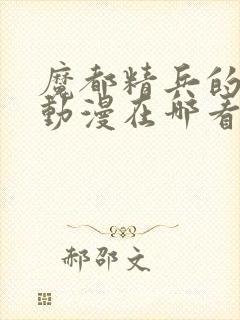 魔都精兵的
動漫在哪看
郝邵文